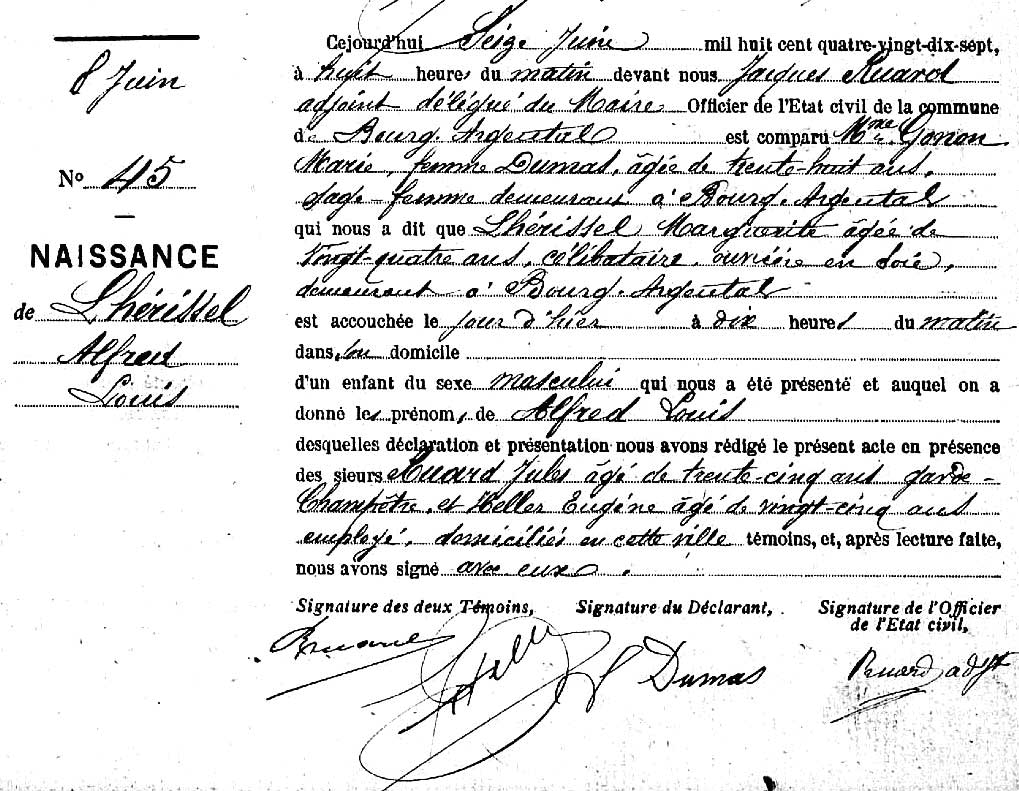 8 Juin
No 45
NAISSANCE
de Lhérissel
Alfred
Louis
Cejourd'hui Seize Juin mil huit cent quatre-vingt-dix-sept,
à huit heures du matin devant nous Jacques Ruard
adjoint délégué du Maire Officier de l'Etat civil de la commune
de Bourg-Argental est comparu Mme Gonon
Marie, femme Dumas, âgée de trente-huit ans,
sage-femme demeurant à Bourg-Argental
qui nous a dit que Lhérissel Marguerite âgée de
vingt-quatre ans, célibataire, ouvrière en soie,
demeurant à Bourg-Argental
est accouchée le jour d'hier à dix heures du matin
dans son domicile
d'un enfant du sexe masculin qui nous a été présenté et auquel on a
donné les prénoms de Alfred Louis
desquelles déclaration et présentation nous avons rédigé le présent acte en présence
des sieurs Ruard Jules âgé de trente-cinq ans garde-
Champêtre, et Heller Eugène âgé de vingt-cinq ans
employé, domiciliés en cette ville témoins, et, après lecture faite,
nous avons signé avec eux.
Signature des deux Témoins, Signature du Déclarant, Signature de l'Officier
de l'Etat civil,
Ruard Heller f Dumas Ruard adjt